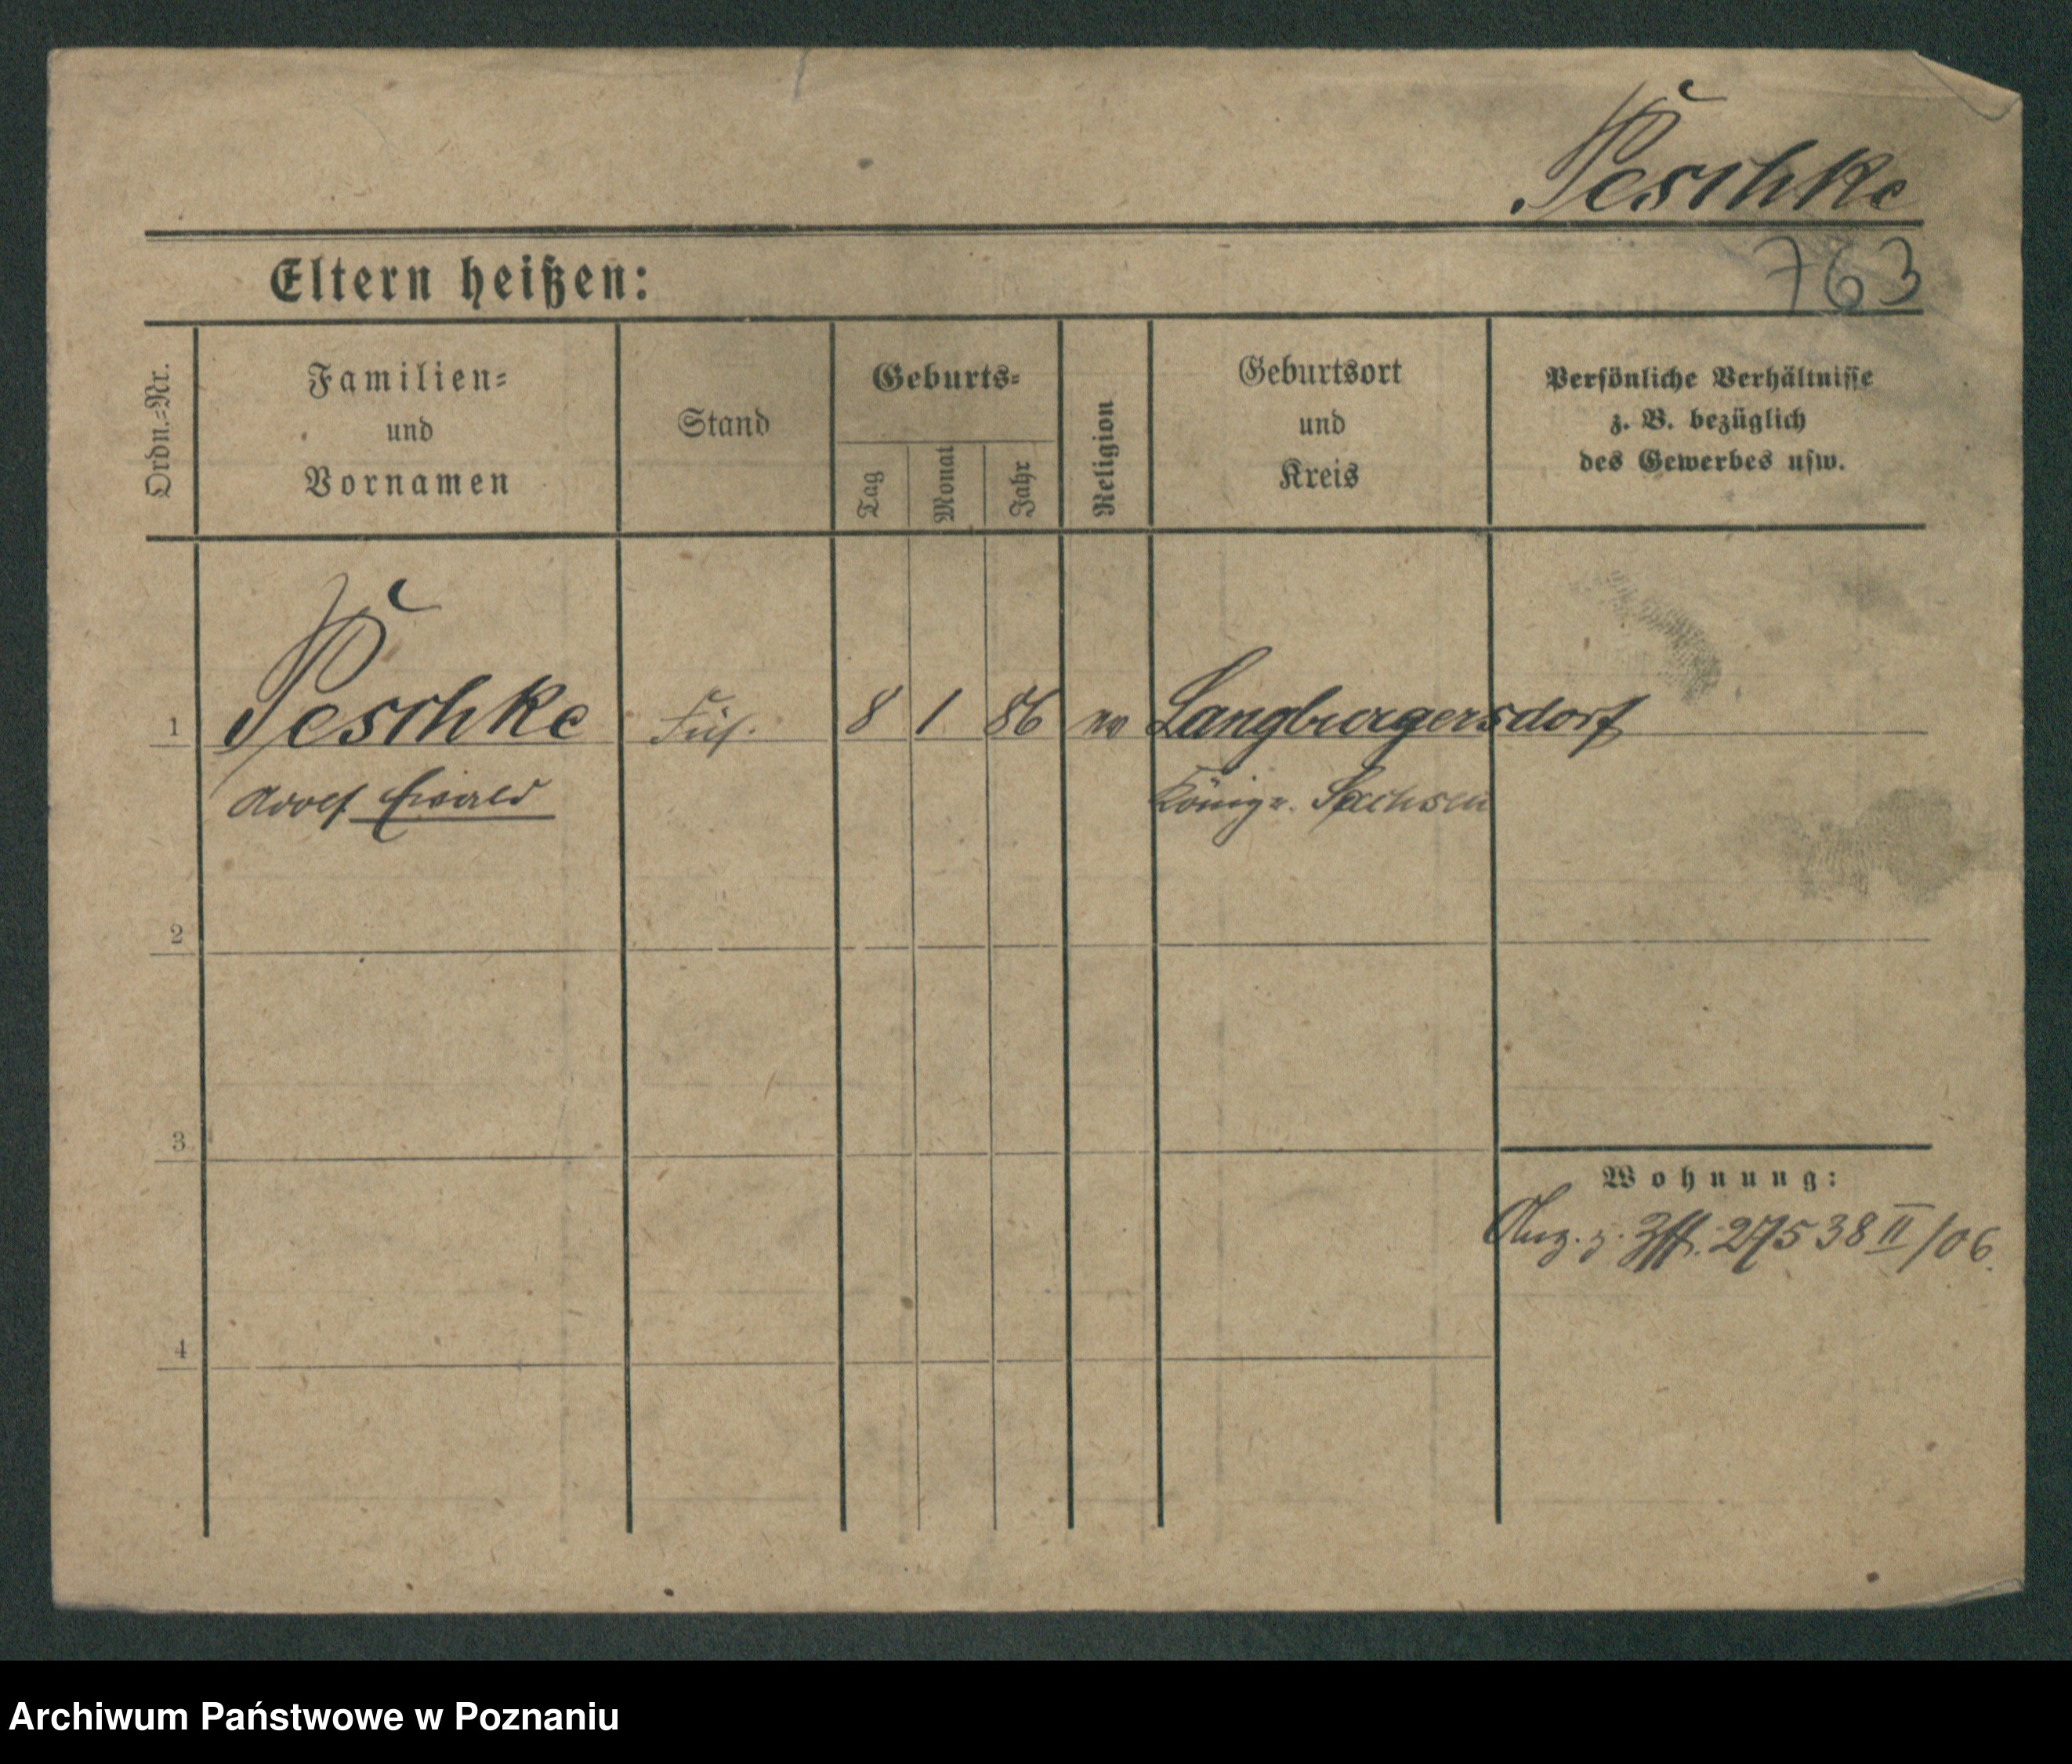 Peschke
763
Eltern heißen:
Ordn.=Nr.
Familien=
und
Vornamen
Stand
Geburts=
Tag
Monat
Jahr
Religion
Geburtsort
und
Kreis
Persönliche Verhältnisse
z. B. bezüglich
des Gewerbes usw.
1 Peschke Füs. 8 1 86 ev Langburgersdorf
Adolf Ewald Königr. Sachsen
2
3
Wohnung:
Anz. z. 27538 II/06.
4
Archiwum Państwowe w Poznaniu